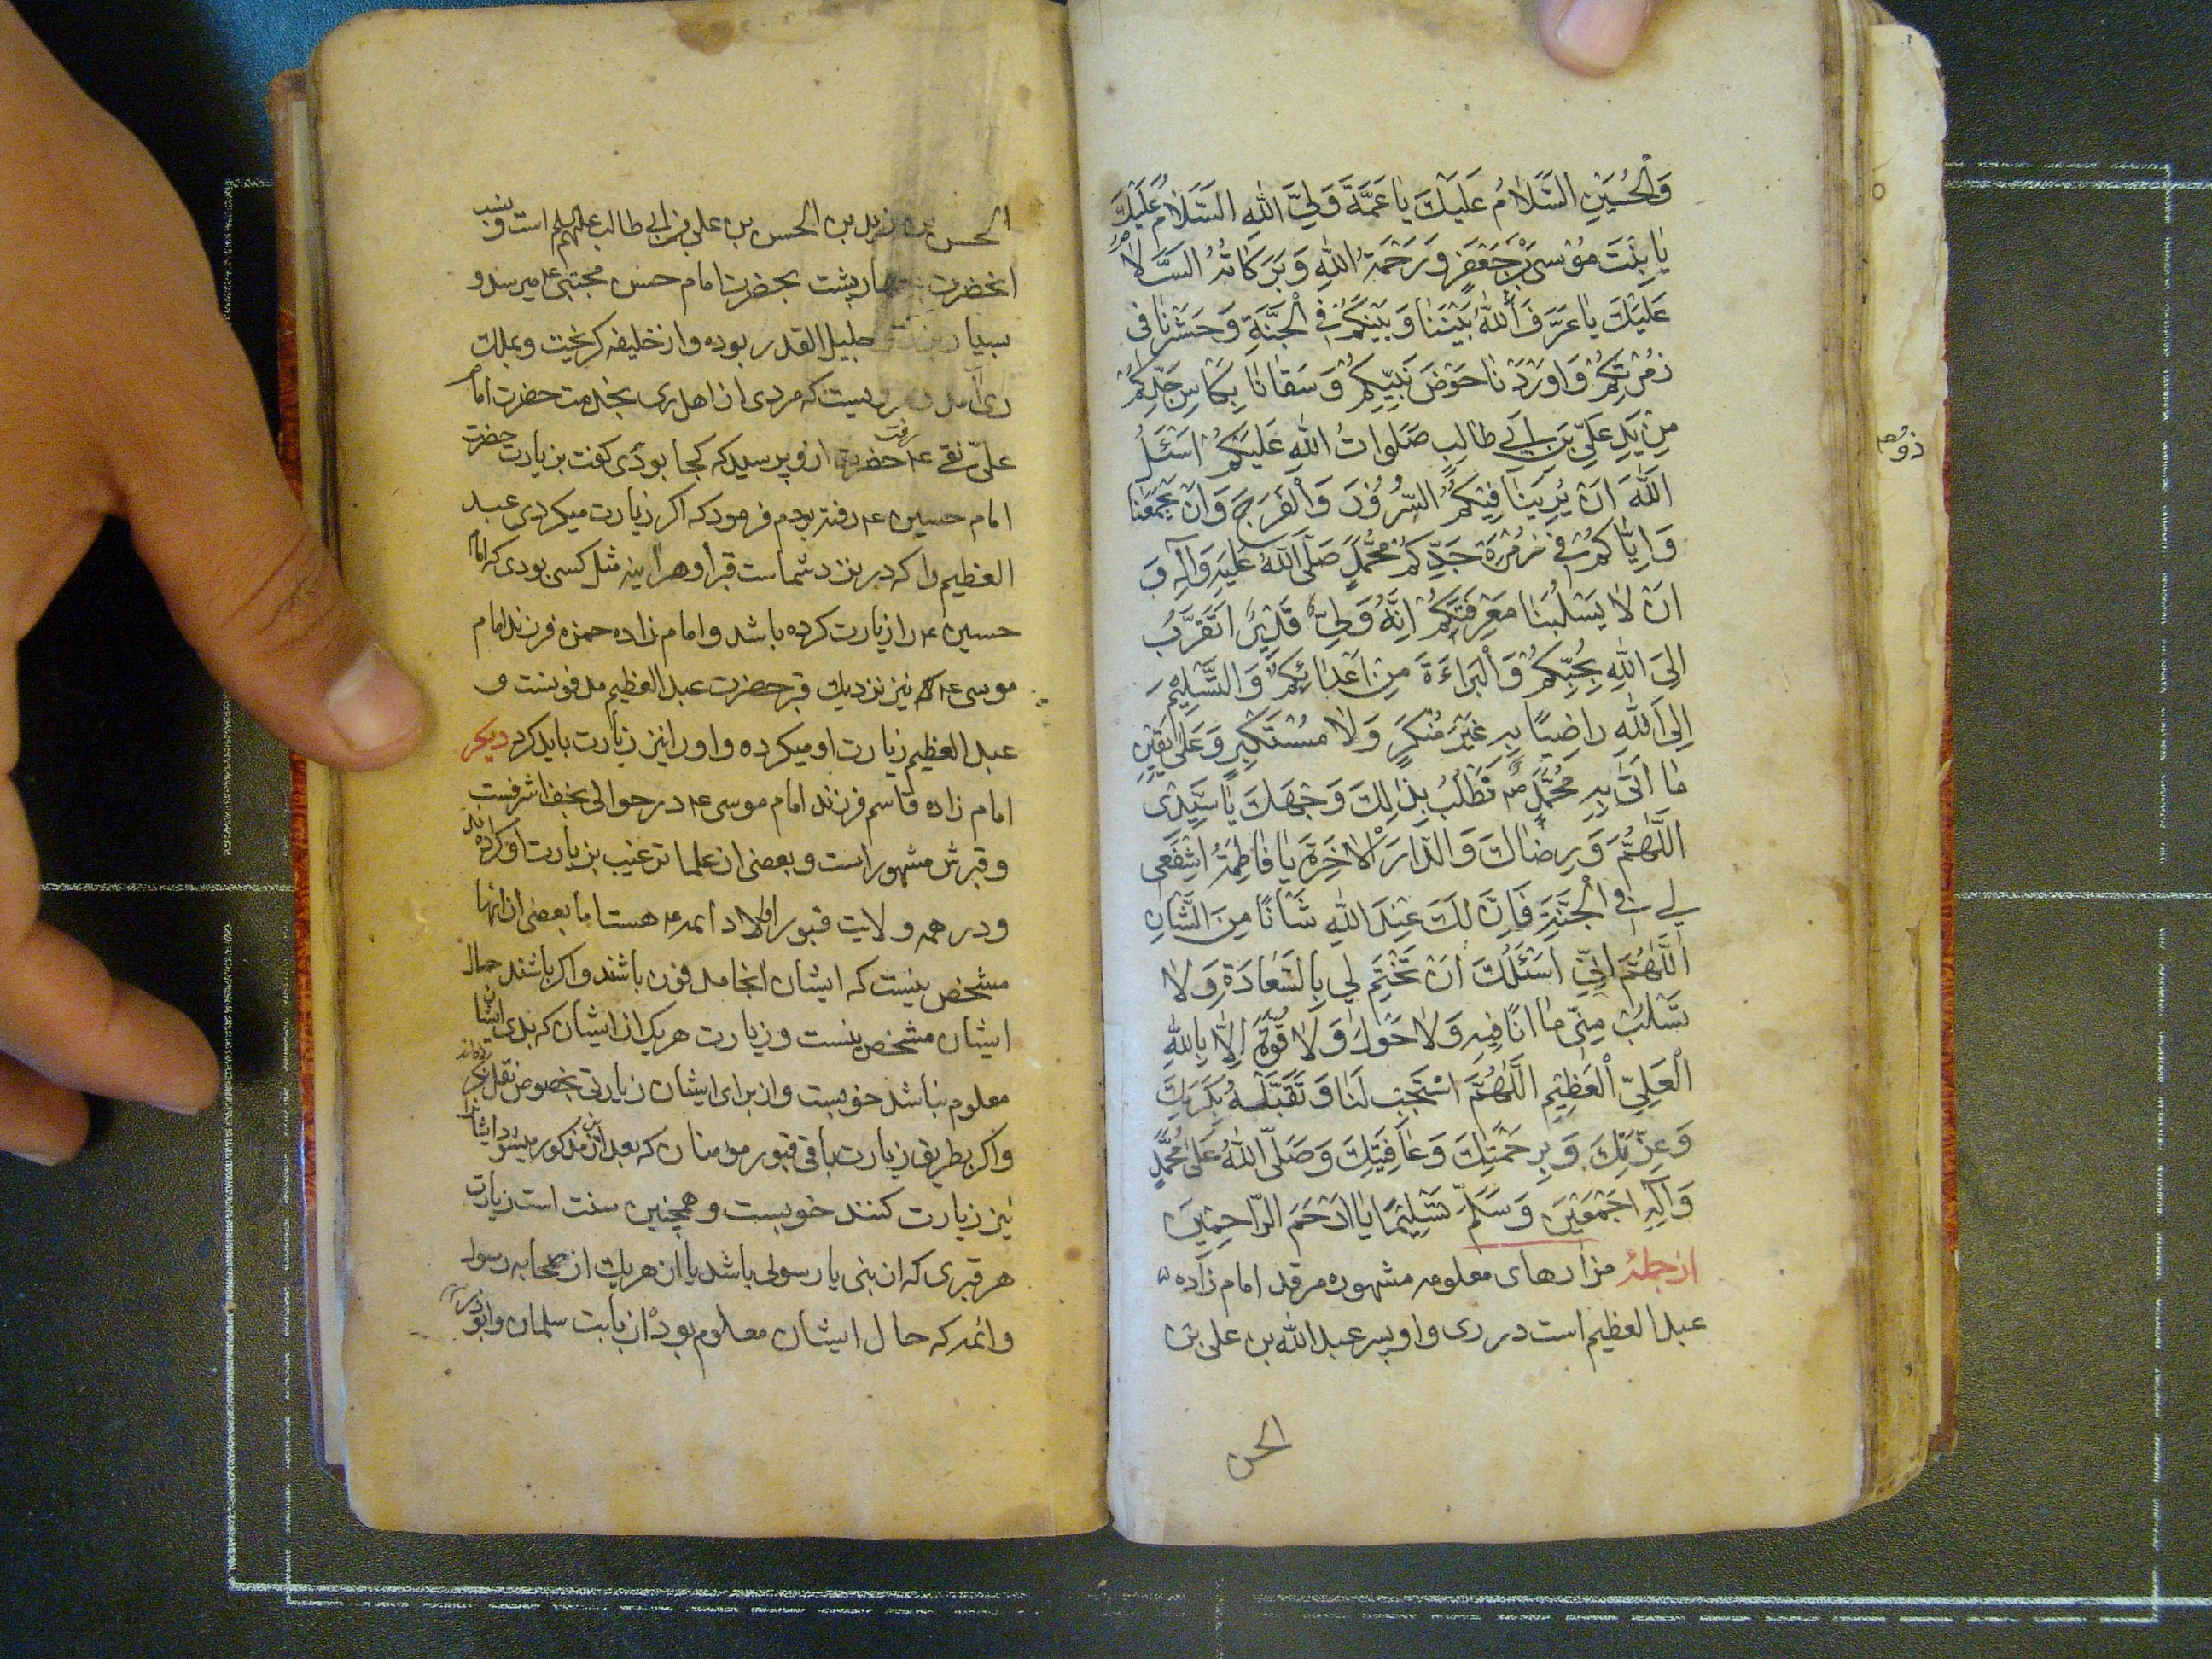 وَالْحُسَيْنِ السَّلَامُ عَلَيْكَ يَا عَمَّةَ وَلِيِّ اللهِ السَّلَامُ عَلَيْكَ
يَا بِنْتَ مُوسَى بْنِ جَعْفَرٍ وَرَحْمَةُ اللهِ وَبَرَكَاتُهُ السَّلَامُ
عَلَيْكَ يَا عَرَّفَ اللهُ بَيْنَنَا وَبَيْنَكُمْ فِي الْجَنَّةِ وَحَشَرَنَا فِي
زُمْرَتِكُمْ وَاوَرَدَنَا حَوْضَ نَبِيِّكُمْ وَسَقَانَا بِكَاسِ جَدِّكُمْ
مِنْ يَدِ عَلِيِّ بْنِ اَبِي طَالِبٍ صَلَوَاتُ اللهِ عَلَيْكُمْ اَسْئَلُ
اللهَ اَنْ يُرِيَنَا فِيكُمُ السُّرُوْرَ وَالْفَرَجَ وَاَنْ يَجْمَعَنَا
وَاِيَّاكُمْ فِي زُمْرَةِ جَدِّكُمْ مُحَمَّدٍ صَلَّى اللهُ عَلَيْهِ وَآلِهِ وَ
اَنْ لَا يَسْلُبَنَا مَعْرِفَتَكُمْ اِنَّهُ وَلِيٌّ قَدِيرٌ اَتَقَرَّبُ
اِلَى اللهِ بِحُبِّكُمْ وَالْبَرَاءَةَ مِنْ اَعْدَائِكُمْ وَالتَّسْلِيْمَ
اِلَى اللهِ رَاضِيًا بِهِ غَيْرَ مُنْكِرٍ وَلَا مُسْتَكْبِرٍ وَعَلَى يَقِيْنِ
مَا اَتَى بِهِ مُحَمَّدٌ ص نَطْلُبُ بِذٰلِكَ وَجْهَكَ يَا سَيِّدِى
اَللّٰهُمَّ وَرِضَاكَ وَالدَّارَ الْاٰخِرَةَ يَا فَاطِمَةُ اشْفَعِى
لِي فِي الْجَنَّةِ فَاِنَّ لَكَ عِنْدَ اللهِ شَانًا مِنَ الشَّانِ
اَللّٰهُمَّ اِنِّي اَسْئَلُكَ اَنْ تَخْتِمَ لِي بِالسَّعَادَةِ وَلَا
تَسْلُبْ مِنِّي مَا اَنَا فِيهِ وَلَا حَوْلَ وَلَا قُوَّةَ اِلَّا بِاللهِ
الْعَلِيِّ الْعَظِيْمِ اَللّٰهُمَّ اسْتَجِبْ لَنَا وَتَقَبَّلْهُ بِكَرَمِكَ
وَعِزَّتِكَ وَبِرَحْمَتِكَ وَعَافِيَتِكَ وَصَلَّى اللهُ عَلَى مُحَمَّدٍ
وَآلِهِ اَجْمَعِيْنَ وَسَلَّمَ تَسْلِيْمًا يَا اَرْحَمَ الرَّاحِمِيْنَ
از جمله مزارهای معلومه مشهوره مرقد امام زاده
عبد العظیم است در ری و او پسر عبد الله بن علی بن
الحسن
الحسن بن زید بن الحسن بن علی بن ابی طالب علیهم السلم است و نسب
انحضرت بچهار پشت بحضرت امام حسن مجتبی ع میرسد و
بسیار جلیل القدر بوده و از خلیفه کریخت و بملک
ری آمد که مردی از اهل ری بخدمت حضرت امام
علی نقی ع رفت حضرت ازو پرسید که کجا بودی کفت بزیارت حضرت
امام حسین ع رفته بودم فرمود که اکر زیارت میکردی عبد
العظیم را که در نزد شماست قبر او هر اینه مثل کسی بودی که امام
حسین ع را زیارت کرده باشد و امام زاده حمزه فرزند امام
موسی ع که نیز نزدیک قبر حضرت عبد العظیم مدفونست و
عبد العظیم زیارت او میکرده و او را نیز زیارت باید کرد دیکر
امام زاده قاسم فرزند امام موسی ع در حوالی نجف اشرفست
و قبرش مشهور است و بعضی از علما ترغیب بزیارت او کرده اند
و در همه ولایت قبور اولاد ائمه ع هست اما بعضی از انها
مشخص نیست که ایشان انجا مدفون باشند و اکر باشند حال
ایشان مشخص نیست و زیارت هر یک از ایشان که بدی ایشان
معلوم نباشد خوبست و از برای ایشان زیارتی بخصوص نقل نکرده اند
و اکر بطریق زیارت باقی قبور مومنان که بعد ازین مذکور میشود ایشانرا
نیز زیارت کنند خوبست و همچنین سنت است زیارت
هر قبری که از نبی یا رسولی باشد یا از هر یک از صحابه رسول
و ائمه که حال ایشان معلوم بود از بابت سلمان و ابوذر